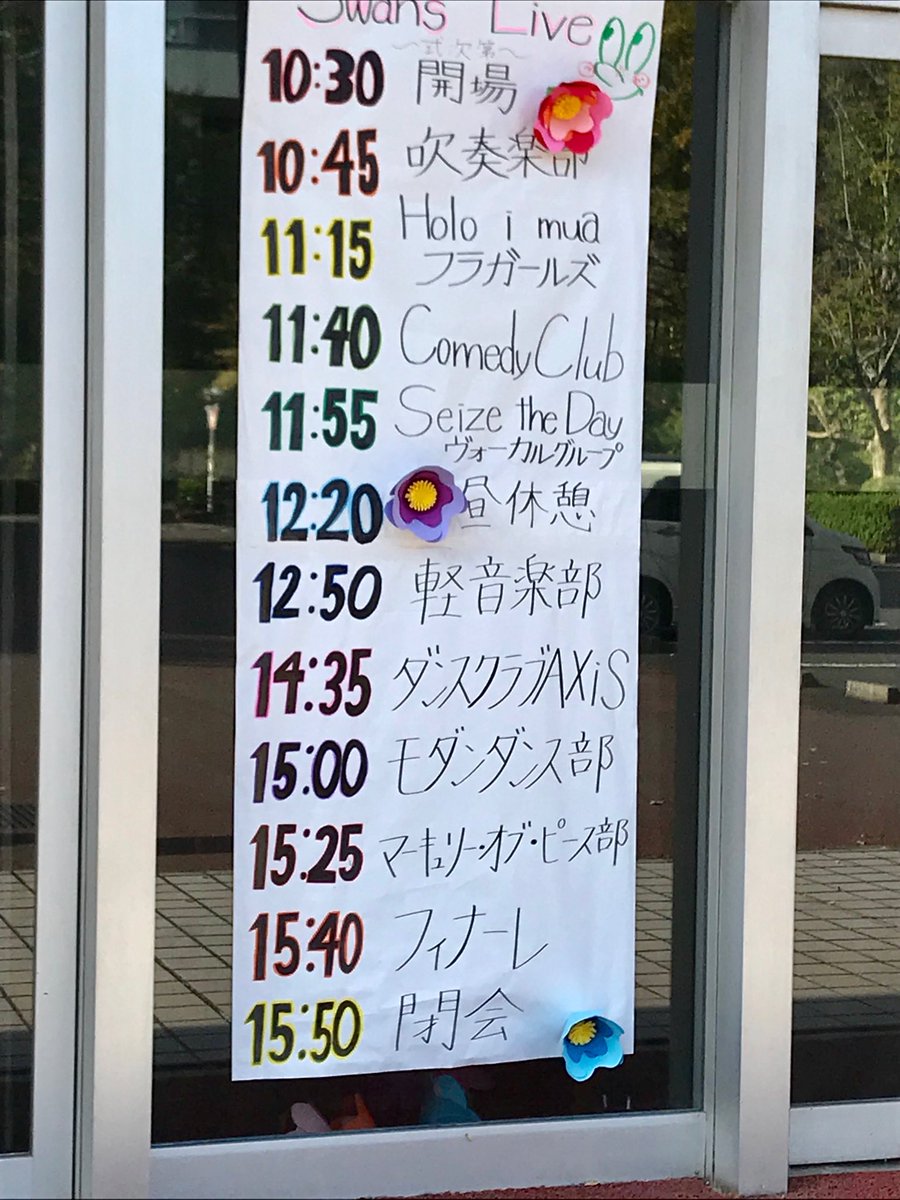 Swans Live
～式次第～
10:30 開場
10:45 吹奏楽部
11:15 Holo i mua
フラガールズ
11:40 Comedy Club
11:55 Seize the Day
ヴォーカルグループ
12:20 昼休憩
12:50 軽音楽部
14:35 ダンスクラブAXiS
15:00 モダンダンス部
15:25 マーキュリー・オブ・ピース部
15:40 フィナーレ
15:50 閉会